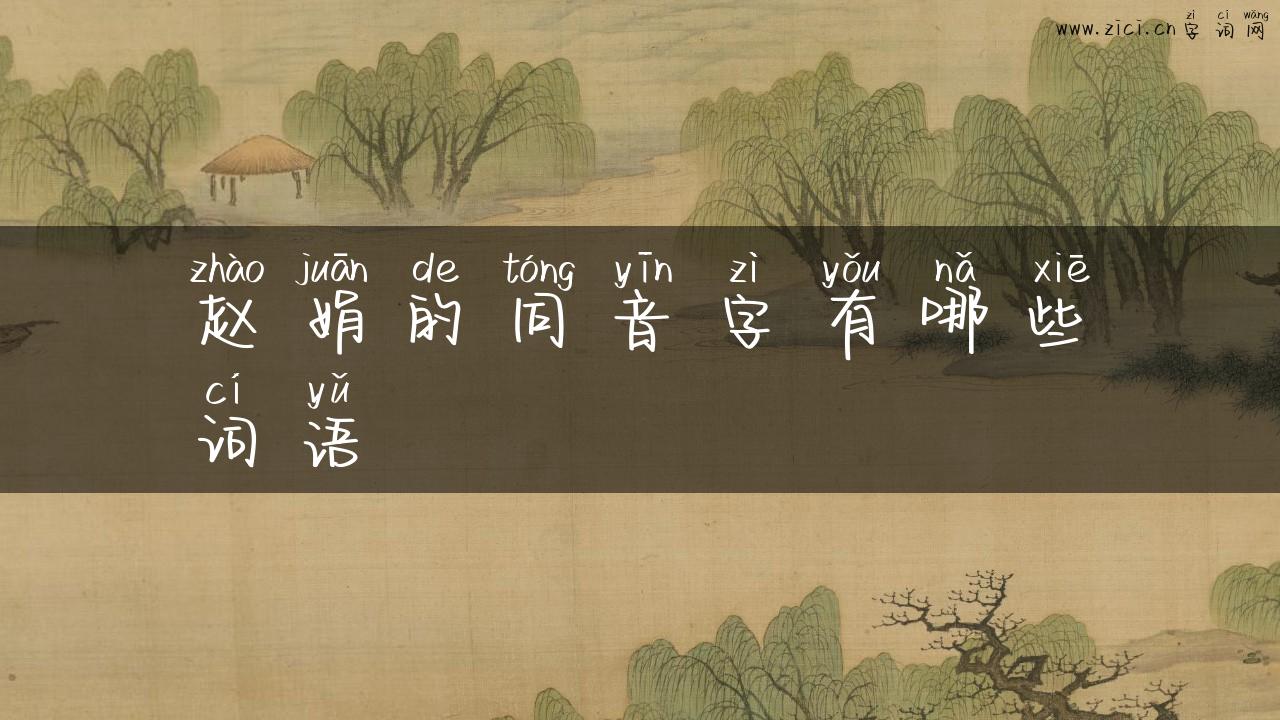 zì cí wǎng
www.zici.cn 字词网
zhào juān de tóng yīn zì yǒu nǎ xiē
赵娟的同音字有哪些
cí yǔ
词语